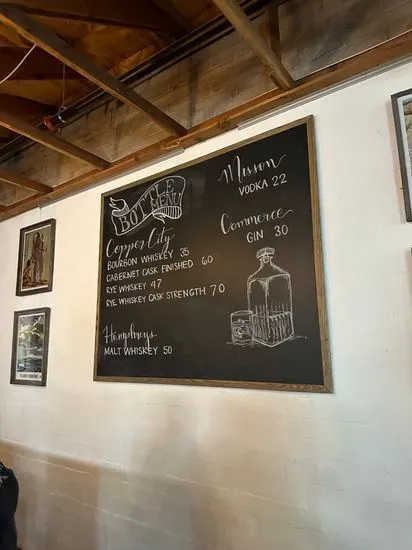 BOTTLE
MENU
Copper City
BOURBON WHISKEY 35
CABERNET CASK FINISHED 60
RYE WHISKEY 47
RYE WHISKEY CASK STRENGTH 70
Humphreys
MALT WHISKEY 50
Musson
VODKA 22
Commerce
GIN 30